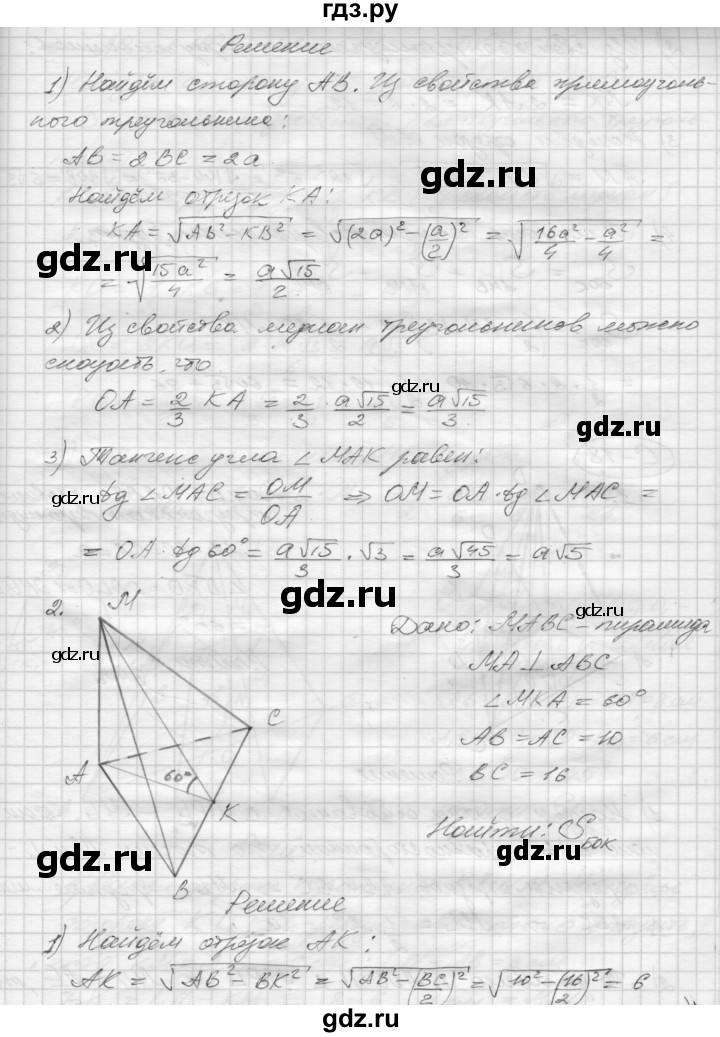 гдз.ру
Решение
1) Найдём сторону AB. Из свойства прямоуголь-
ного треугольника:
AB = 2 BC = 2a
gdz.ru
gdz.ru
Найдём отрезок KA:
KA = √(AB² - KB²) = √((2a)² - (a/2)²) = √(16a²/4 - a²/4) =
= √(15a²/4) = a√15/2
2) Из свойства медиан треугольников можно
сказать, что
gdz.ru
OA = 2/3 KA = 2/3 · a√15/2 = a√15/3
gdz.ru
3) Тангенс угла ∠MAK равен:
gdz.ru
tg ∠MAC = OM/OA ⇒ OM = OA · tg ∠MAC =
= OA · tg 60° = a√15/3 · √3 = a√45/3 = a√5
gdz.ru
gdz.ru
2.
M
Дано: MABC – пирамида
gdz.ru
MA ⊥ ABC
∠MKA = 60°
C
AB = AC = 10
A
60°
BC = 16
K
Найти: Sбок
gdz.ru
gdz.ru
B
Решение
1) Найдём отрезок AK:
gdz.ru
AK = √(AB² - BK²) = √(AB² - (BC/2)²) = √(10² - (16/2)²) = 6
gdz.ru
gdz.ru